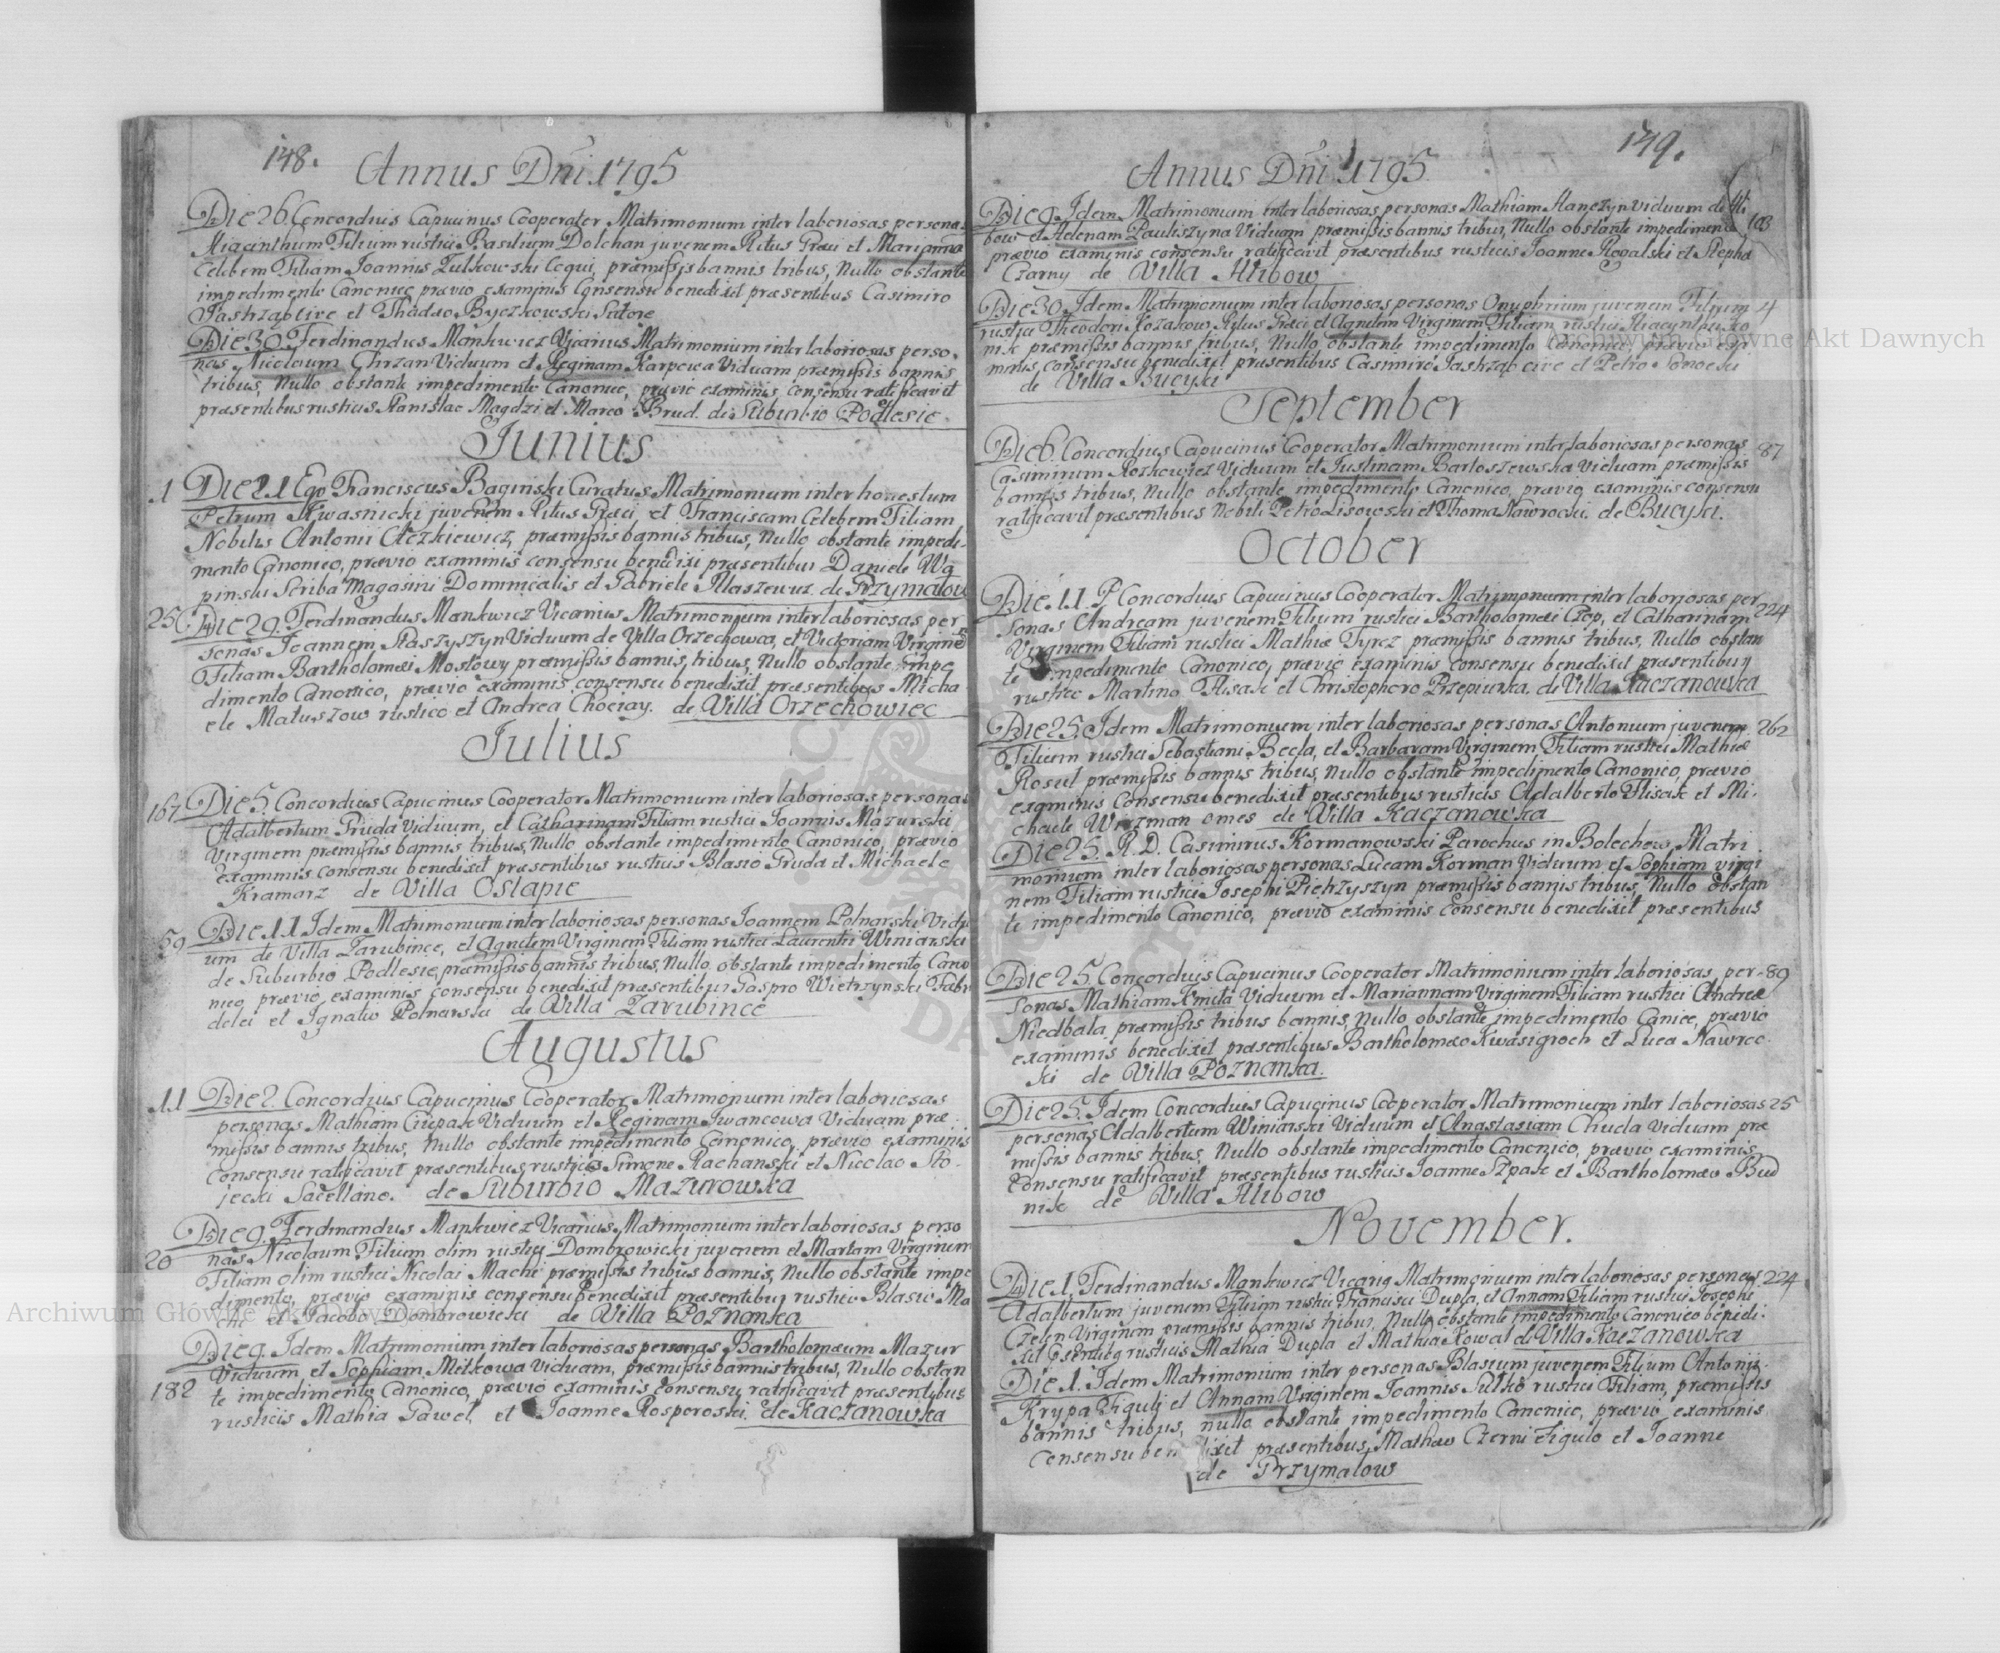 148.
Annus Dni 1795
Die 26. Concordius Capucinus Cooperator Matrimonium inter laboriosas personas
Hiacinthum Filium rustici Basilium Dolchan juvenem Ritus Graeci et Mariannam
Celebem Filiam Joannis Zulkowski Coqui, praemissis bannis tribus, Nullo obstante
impedimento Canonico praevio examinis Consensu benedixit praesentibus Casimiro
Jastrząb cive et Thadaeo Byczkowski Sutore
Die 30. Ferdinandus Mankwicz Vicarius Matrimonium inter laboriosas perso.
nas Nicolaum Chrzan Viduum et Reginam Karpowa Viduam praemissis bannis
tribus, Nullo obstante impedimento Canonico, praevio examinis, consensu ratificavit
praesentibus rusticis Stanislao Magdzi et Marco Brud. de Suburbio Podlesie.
Junius
1 Die 21 Ego Franciscus Baginski Curatus Matrimonium inter honestum
Petrum Kwasnicki juvenem Ritus Graeci et Franciscam Celebem Filiam
Nobilis Antonii praemissis bannis tribus, Nullo obstante impedi-
mento Canonico, praevio examinis consensu benedixi praesentibus Daniele Wa
pinski Scriba Magasini Dominicalis et Gabriele de Przymalow
25 Die 29. Ferdinandus Mankwicz Vicarius Matrimonium inter laboriosas per
sonas Joannem Raszyszyn Viduum de Villa Orzechowca, et Victoriam Virginem 5
Filiam Bartholomaei Mostowy praemissis bannis, tribus, Nullo obstante impe
dimento Canonico, praevio examinis consensu benedixit praesentibus Micha
ele Matuszow rustico et Andrea Chociay. de Villa Orzechowiec
Julius
167 Die 5. Concordius Capucinus Cooperator Matrimonium inter laboriosas personas
Adalbertum Gruda Viduum, et Catharinam Filiam rustici Joannis Mazurski
Virginem praemissis bannis tribus, Nullo obstante impedimento Canonico, praevio
examinis consensu benedixit praesentibus rusticis Blasio Gruda et Michaele
Kramarz de Villa Ostapie
59 Die 11 Idem Matrimonium inter laboriosas personas Joannem Polnarski Vidu
um de Villa Zarubince, et Agnetem Virginem Filiam rustici Laurentii Winiarski
de Suburbio Podlesie, praemissis bannis tribus, Nullo obstante impedimento Cano
nico, praevio examinis consensu benedixit praesentibus Gaspro Wietrzynski Fabri
delei et Ignatio Polnarski de Villa Zarubince
Augustus
11 Die 2. Concordius Capucinus Cooperator Matrimonium inter laboriosas
personas Mathiam Ciupak Viduum et Reginam Iwancowa Viduam prae.
missis bannis tribus, Nullo obstante impedimento Canonico, praevio examinis
Consensu ratificavit praesentibus rusticis Simone Rachanski et Nicolao Sto.
jecki Sacellano. de Suburbio Mazurowka
Die 9. Ferdinandus Mankwicz Vicarius Matrimonium inter laboriosas perso
20 nas Nicolaum Filium olim rustici Dombrowicki juvenem et Martam Virginem
Filiam olim rustici Nicolai Machi praemissis tribus bannis, Nullo obstante impe
dimento, praevio examinis consensu benedixit praesentibus rusticis Blasio Ma
chi et Jacobo Dombrowiecki de Villa Poznanka
Die 9. Idem Matrimonium inter laboriosas personas Bartholomaeum Mazur
Viduum et Sophiam Mitkowa Viduam, praemissis bannis tribus, Nullo obstan
182 te impedimento Canonico, praevio examinis consensu ratificavit praesentibus
rusticis Mathia Pawel, et Joanne Rosporoski. de Kaczanowka
149.
Annus Dni 1795
Die 9. Idem Matrimonium inter laboriosas personas Mathiam Hanczyn viduum de Hli
bow et Helenam Pauliszyna Viduam praemissis bannis tribus, Nullo obstante impedimento 103
praevio examinis consensu ratificavit praesentibus rusticis Joanne Kowalski et Stepha
Czarny de Villa Hlibow
Die 30. Idem Matrimonium inter laboriosas personas Onyphrium juvenem Filium 4
rustici Theodori Kozakow Ritus Graeci et Agnetem Virginem Filiam rustici
praemissis bannis tribus, Nullo obstante impedimento Canonico, praevio exa
minis consensu benedixit praesentibus Casimiro Jastrząb cive et Petro
de Villa Bucyki
September
Die 6. Concordius Capucinus Cooperator Matrimonium inter laboriosas personas 87
Casimirum Rozkowicz Viduum et Justinam Bartoszewska Viduam praemissis
bannis tribus, Nullo obstante impedimento Canonico, praevio examinis consensu
ratificavit praesentibus Nobili Petro Lisowski et Thoma Nawrocki. de Bucyki.
October
Die 11 P Concordius Capucinus Cooperator Matrimonium inter laboriosas per 224
sonas Andream juvenem Filium rustici Bartholomaei Czop, et Catharinam
Virginem Filiam rustici Mathiae Gyrcz praemissis bannis tribus, Nullo obstan
te impedimento Canonico, praevio examinis consensu benedixit praesentibus
rusticis Martino Flisak et Christophoro Przepiurka. de Villa Kaczanowka
Die 25. Idem Matrimonium inter laboriosas personas Antonium juvenem 262
Filium rustici Sebastiani Becla, et Barbaram Virginem Filiam rustici Mathiae
Rosul praemissis bannis tribus, Nullo obstante impedimento Canonico, praevio
examinis Consensu benedixit praesentibus rusticis Adalberto Flisak et Mi.
chaele Wirzman omes de Villa Kaczanowka
Die 25. R. D. Casimirus Kormanowski Parochus in Bolechow Matri
monium inter laboriosas personas Lucam Korman Viduum et Sophiam virgi
nem Filiam rustici Josephi Pietrzyszyn praemissis bannis tribus, Nullo obstan
te impedimento Canonico, praevio examinis consensu benedixit praesentibus
Die 25. Concordius Capucinus Cooperator Matrimonium inter laboriosas per- 89
sonas Mathiam Kmita Viduum et Mariannam Virginem Filiam rustici Andreae
Niedbala praemissis tribus bannis, Nullo obstante impedimento Canico, praevio
examinis benedixit praesentibus Bartholomaeo Kwasigroch et Luca Nawroc.
ki de Villa Poznanka.
Die 25. Idem Concordius Capucinus Cooperator Matrimonium inter laboriosas 25
personas Adalbertum Winiarski Viduum et Anastasiam Chuda Viduam prae
missis bannis tribus, Nullo obstante impedimento Canonico, praevio examinis
Consensu ratificavit praesentibus rusticis Joanne Szpak et Bartholomaeo Bud
nik de Villa Hlibow
November.
Die 1. Ferdinandus Mankwicz Vicarius Matrimonium inter laboriosas personas 224
Adalbertum juvenem Filium rustici Francisci Dupla, et Annam Filiam rustici Josephi
Virginem praemissis bannis tribus, Nullo obstante impedimento Canonico benedi.
xit rusticis Mathia Dupla et Mathia Kowal de Villa Kaczanowka
Die 1. Idem Matrimonium inter personas Blasium juvenem Filium Antonii
Krypa Figuli et Annam Virginem Joannis Sulko rustici Filiam, praemissis
bannis tribus, nullo obstante impedimento Canonico, praevio examinis
Consensu benedixit praesentibus Mathaeo Czerni Figulo et Joanne
de Przymalow
Archiwum Główne Akt Dawnych
Archiwum Główne Akt Dawnych